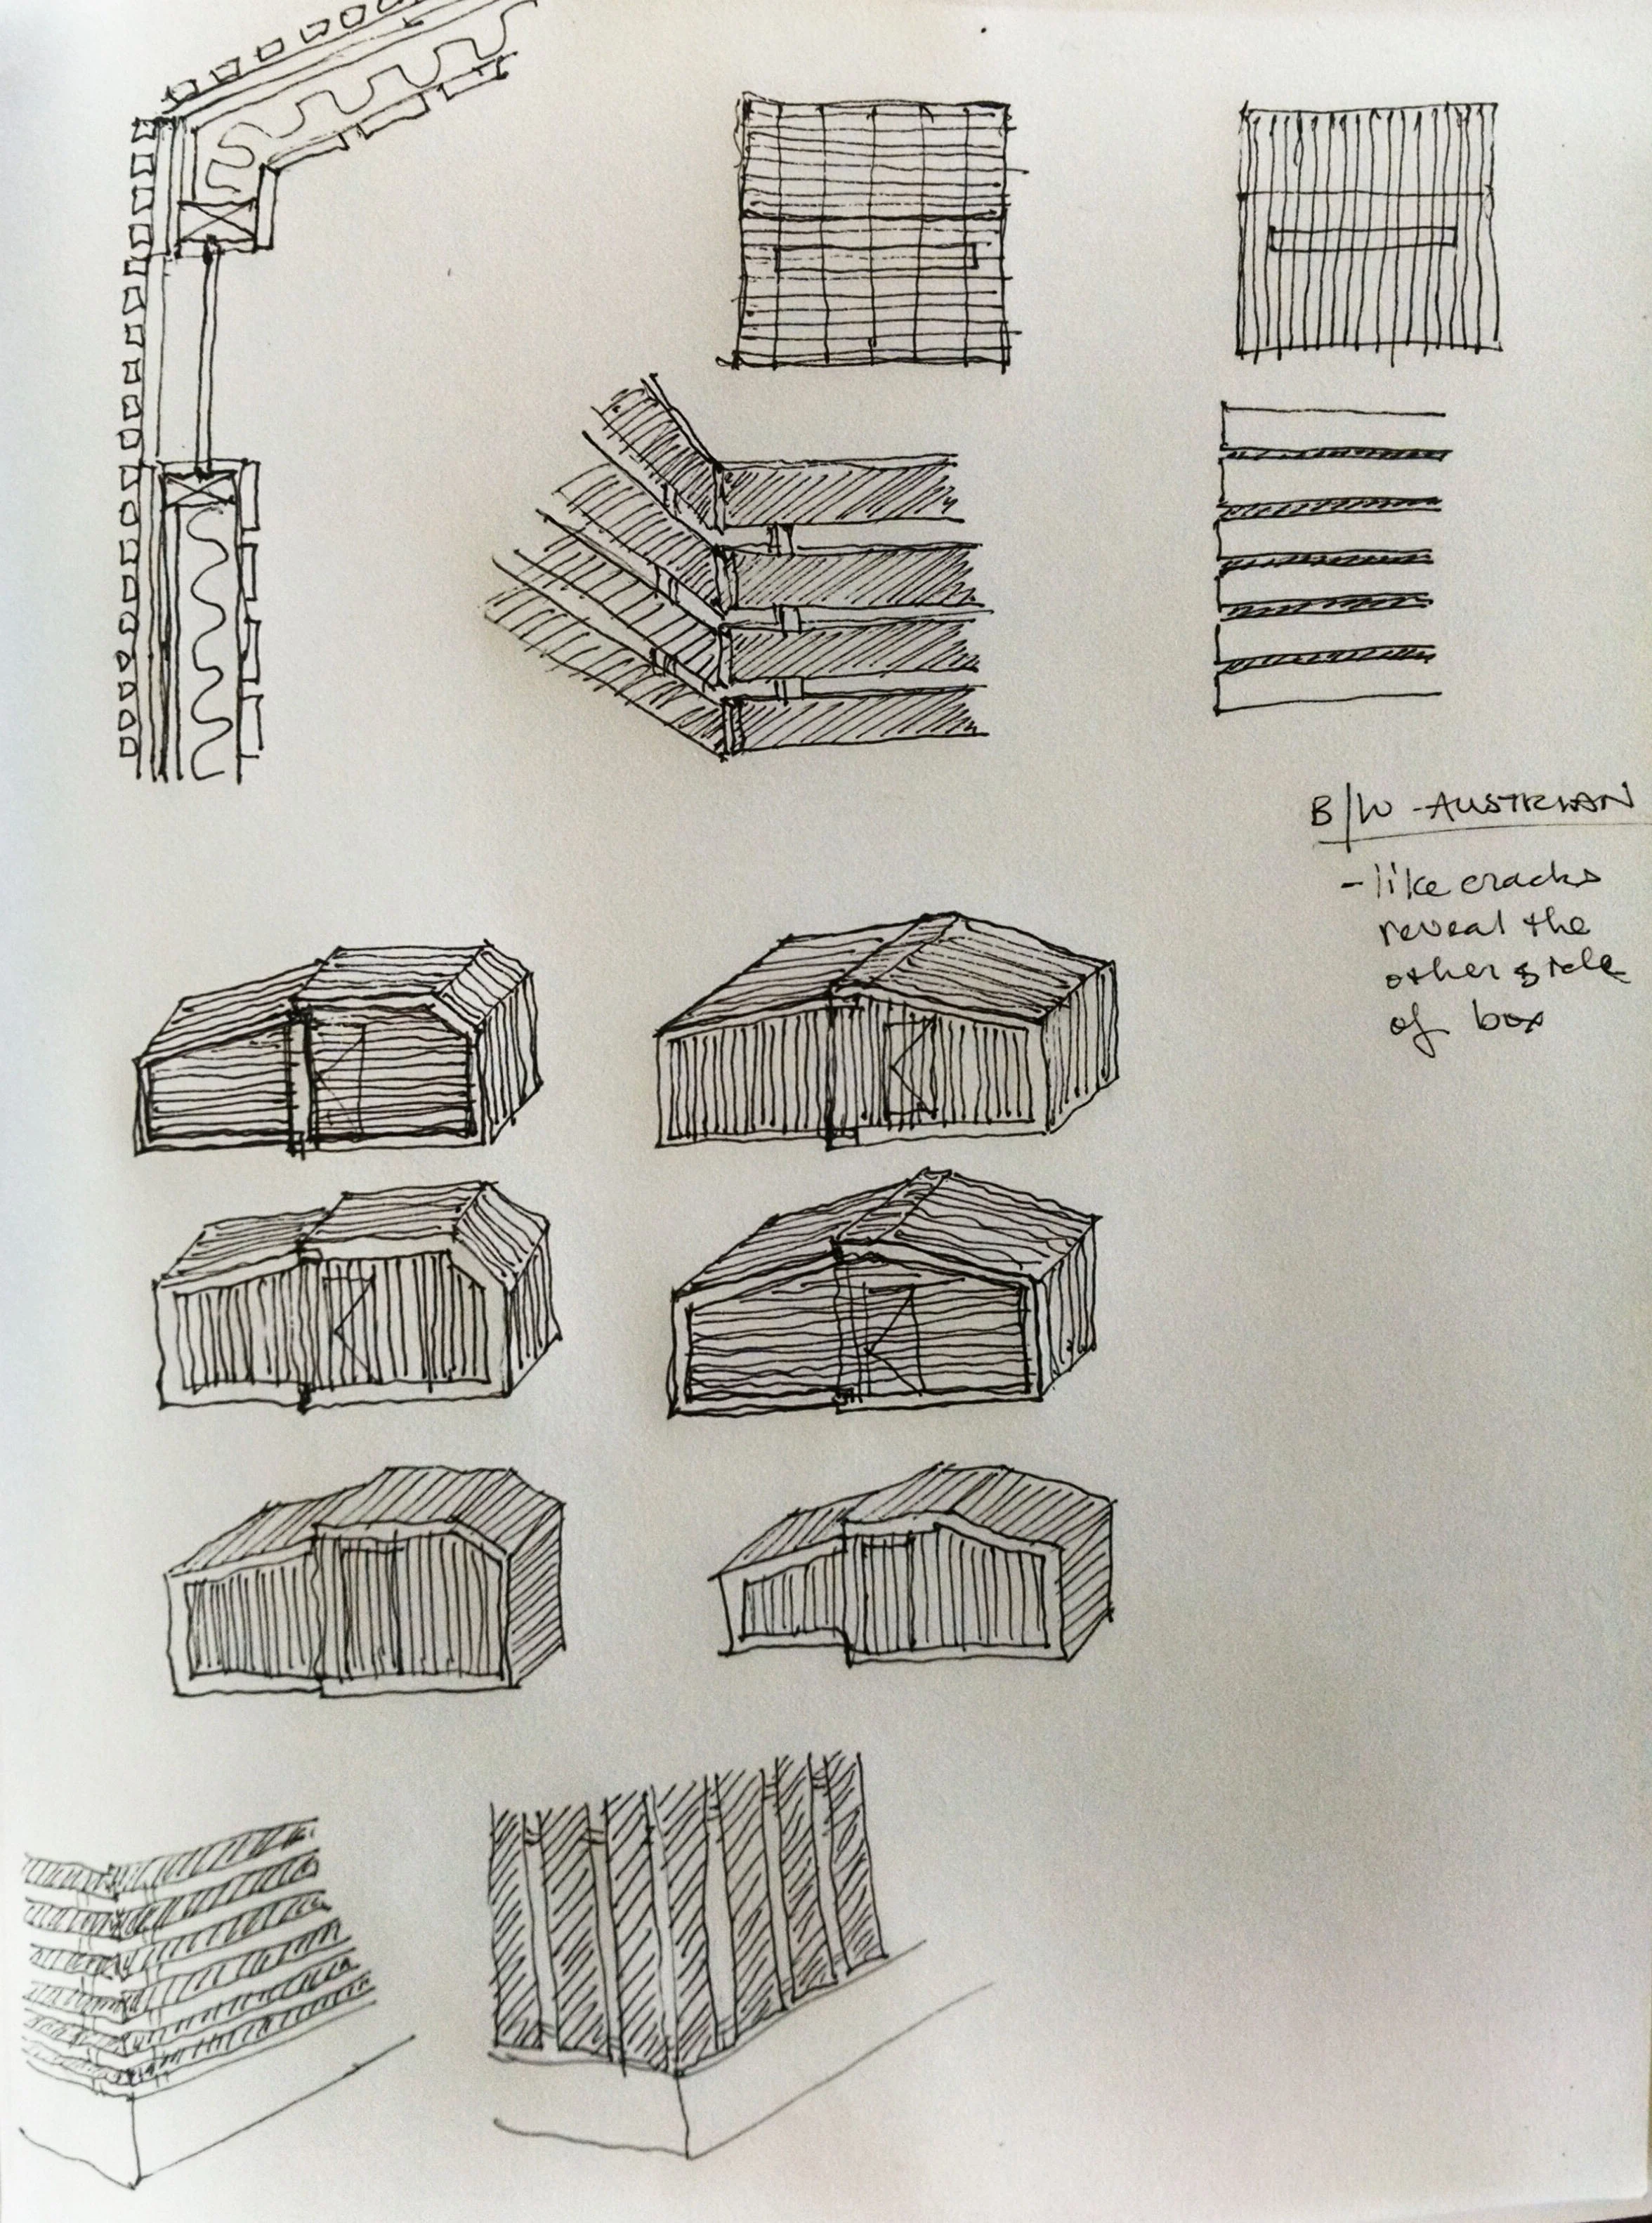 B/W - AUSTRIAN
- like cracks
reveal the
other side
of box